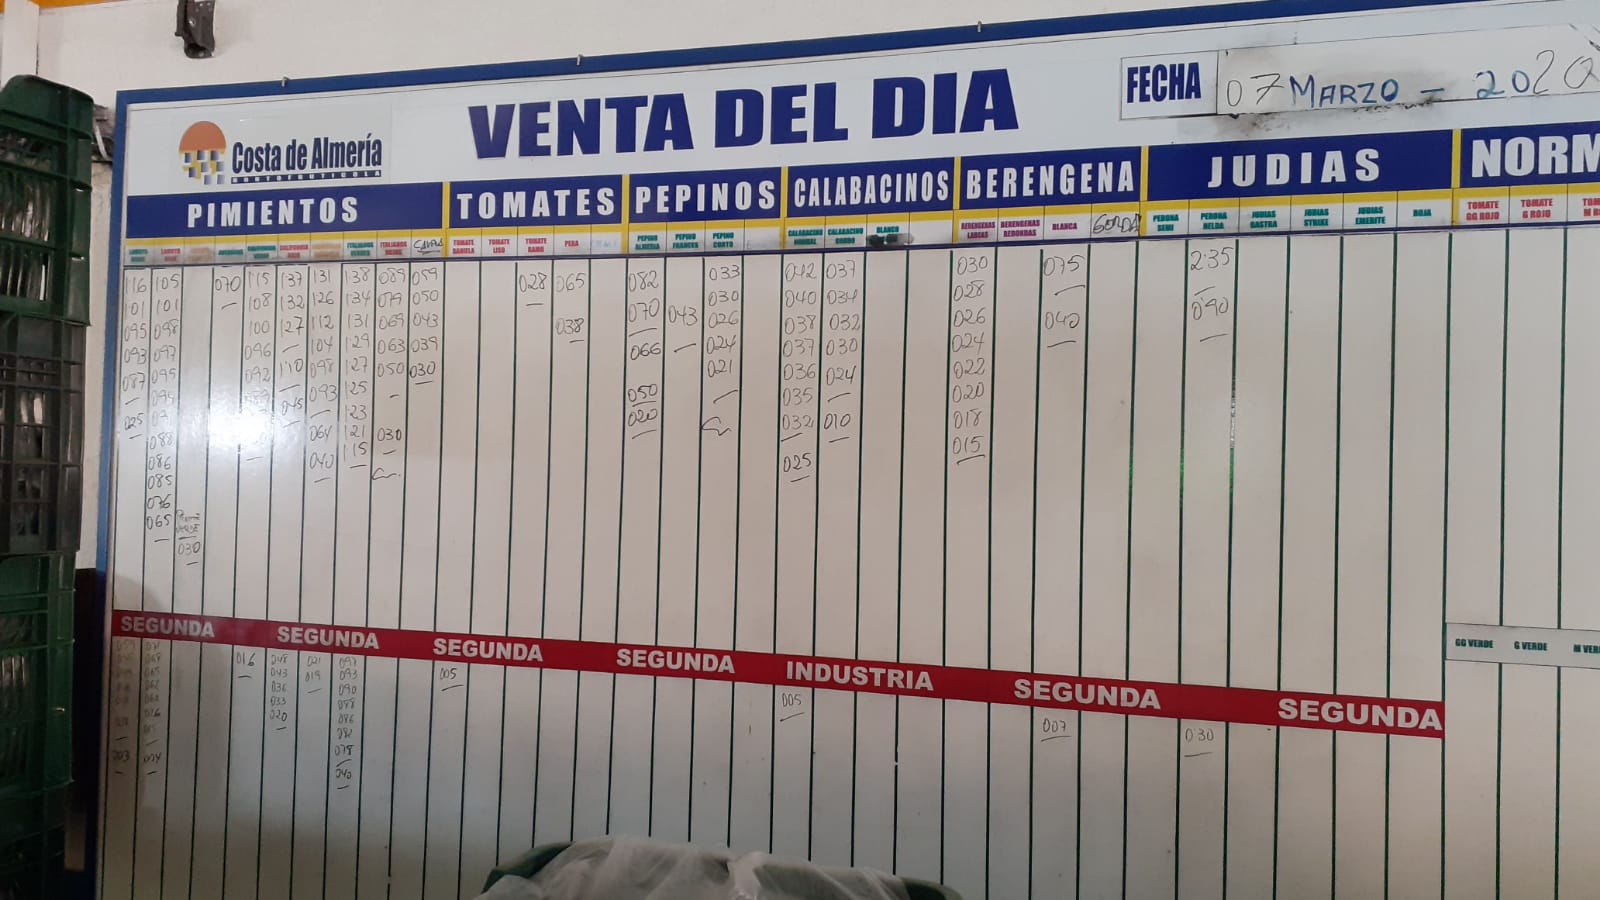 VENTA DEL DIA
FECHA 07 MARZO - 2020
Costa de Almería
HORTOFRUTICOLA
PIMIENTOS TOMATES PEPINOS CALABACINOS BERENGENA JUDIAS NORM
TOMATE DANIELA TOMATE LISO TOMATE RAMO PERA PEPINO ALMERIA PEPINO FRANCES PEPINO CORTO CALABACINO NORMAL CALABACINO GORDO BLANCO BERENGENAS LARGAS BERENGENAS REDONDAS BLANCA GORDA PERONA SEMI PERONA HELDA JUDIAS GASTRA JUDIAS STRIKE JUDIAS EMERITE ROJA TOMATE GG ROJO TOMATE G ROJO
116 105 070 115 137 131 138 089 059 028 065 082 033 042 037 030 075 2'35
101 101 108 132 126 134 079 050 070 043 030 040 034 028
095 098 100 127 112 131 069 043 038 026 038 032 026 040 0'90
093 097 096 104 129 063 039 066 024 037 030 024
087 095 092 110 098 127 050 030 021 036 024 022
095 045 093 125 050 035 020
025 123 020 032 010 018
088 064 121 030 015
086 040 115 025
085
076
065 VERDE
030
SEGUNDA SEGUNDA SEGUNDA SEGUNDA INDUSTRIA SEGUNDA SEGUNDA
GG VERDE G VERDE M VER
016 048 021 097 005 005 007 030
043 019 093
036 090
033 088
020 086
078
040
003 024